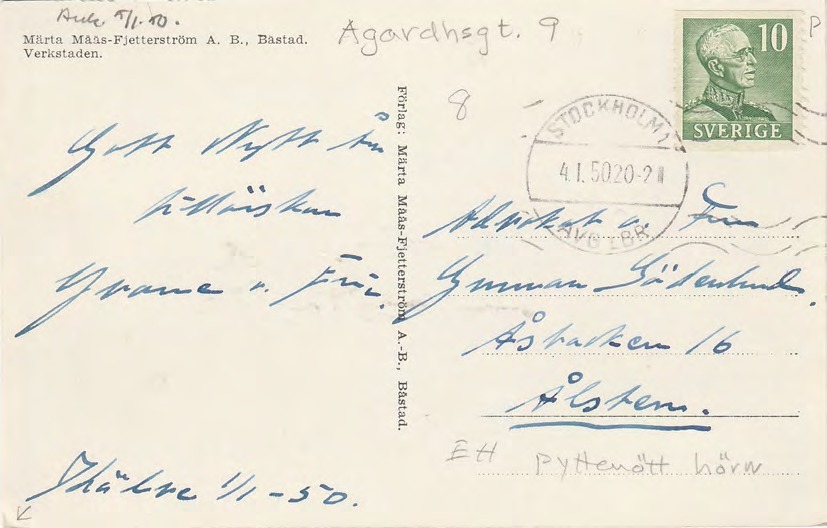 Ank. 5/1.50.
Märta Måås-Fjetterström A. B., Båstad.
Verkstaden.
Agardhsgt. 9
8
P
10
SVERIGE
STOCKHOLM 1
4.1.50 20-21
AVG LBR
Gott Nytt År
tillönskan
Yvonne o. Eric.
1/1 -50.
Förlag: Märta Måås-Fjetterström A.-B., Båstad.
Advokat o. Fru
Gunnar Södenlund.
Åsbacken 16
Ålsten.
EH
pyttenött hörn